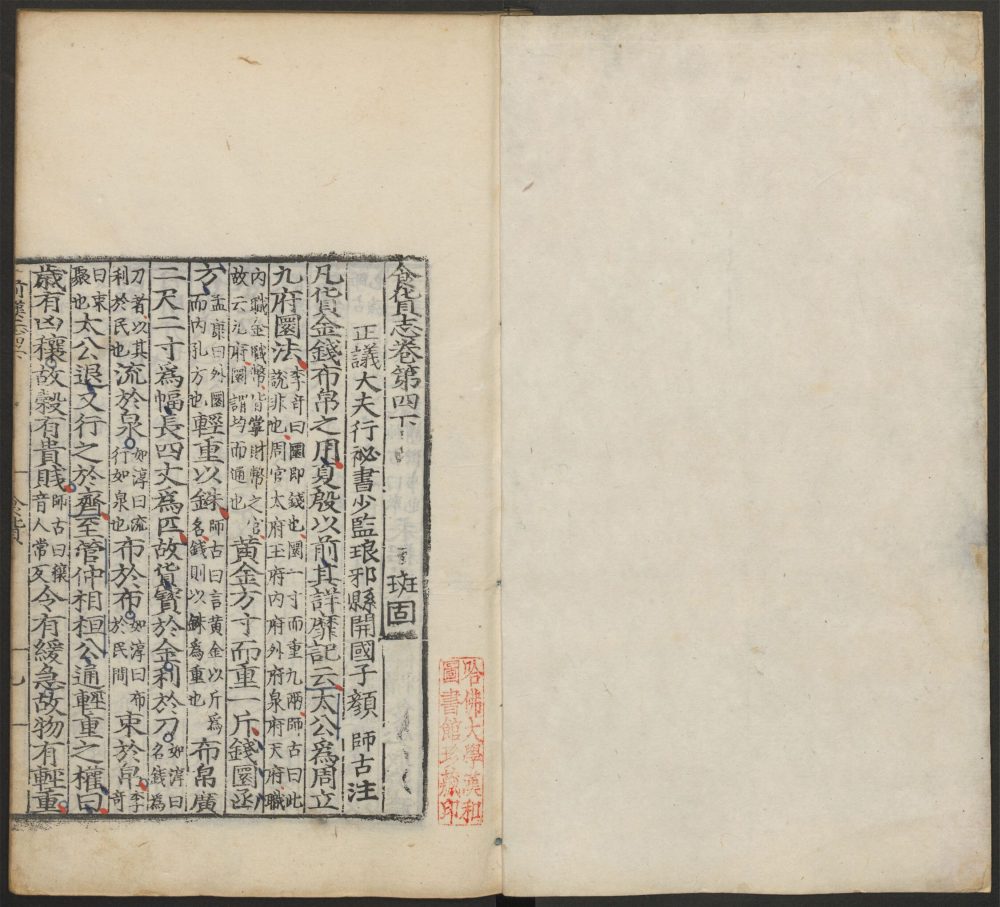 食貨志卷第四下 班固
正議大夫行祕書少監琅邪縣開國子顏 師古注
凡貨金錢布帛之用夏殷以前其詳靡記云太公爲周立
九府圜法李奇曰圜即錢也圜一寸而重九兩師古曰此說非也周官太府王府內府外府泉府天府職
內職金職幣皆掌財幣之官故云九府圜謂均而通也黃金方寸而重一斤錢圜函
方孟康曰外圜而內孔方也輕重以銖師古曰言黃金以斤爲名錢則以銖爲重也布帛廣
二尺二寸爲幅長四丈爲匹故貨寶於金利於刀如淳曰名錢爲
刀者以其利於民也流於泉如淳曰流行如泉也布於布如淳曰布於民間束於帛李奇
曰束聚也太公退又行之於齊至管仲相桓公通輕重之權曰
歲有凶穰故穀有貴賤師古曰穰音人常反令有緩急故物有輕重
哈佛大學漢和
圖書館珍藏印